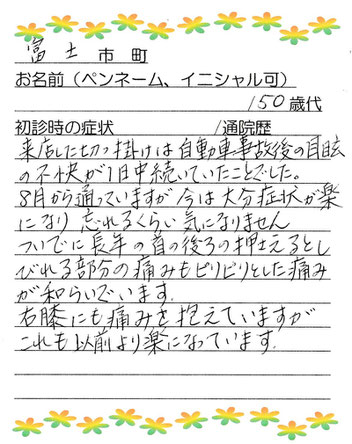 富士市町
お名前(ペンネーム、イニシャル可)
/50歳代
初診時の症状 /通院歴
来店した切っ掛けは自動車事故後の目眩
の不快が1日中続いていたことでした。
8月から通っていますが今は大分症状が楽
になり 忘れるくらい気になりません
ついでに長年の首の後ろの押えるとし
びれる部分の痛みもピリピリとした痛み
が和らいでいます.
右膝にも痛みを抱えていますが
これも以前より楽になっています.